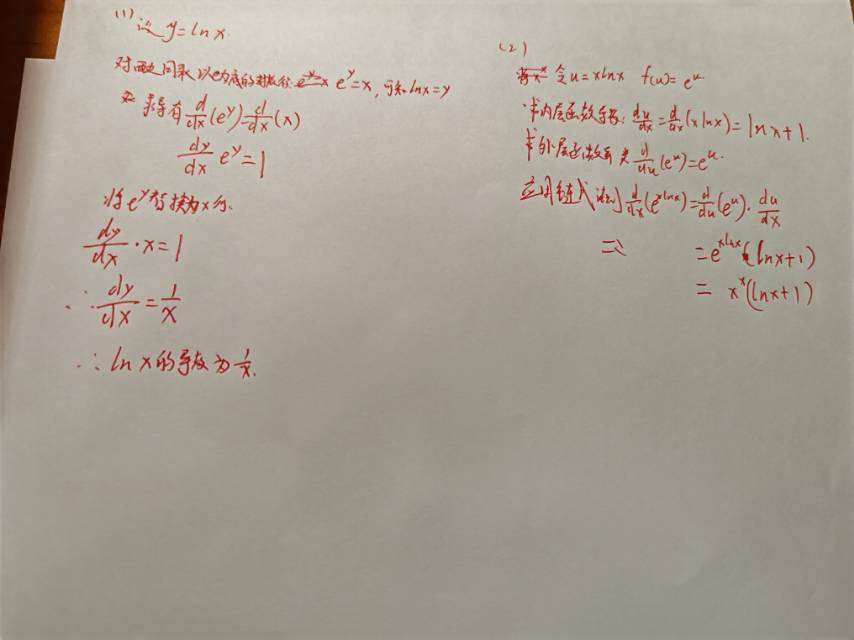 (1) 设 y=ln x.
对两边同取以e为底的指数得 e^y=x, 可知 ln x=y
求导有 d/dx(e^y)=d/dx(x)
dy/dx e^y=1
将e^y替换为x得.
dy/dx · x=1
∴ dy/dx=1/x
∴ ln x的导数为 1/x.
(2)
令u=xlnx f(u)=e^u
求内层函数导数: du/dx=d/dx(xlnx)=lnx+1.
求外层函数导数 d/du(e^u)=e^u.
应用链式法则 d/dx(e^{xlnx})=d/du(e^u)·du/dx
=e^{xlnx}·(lnx+1)
= x^x(lnx+1)